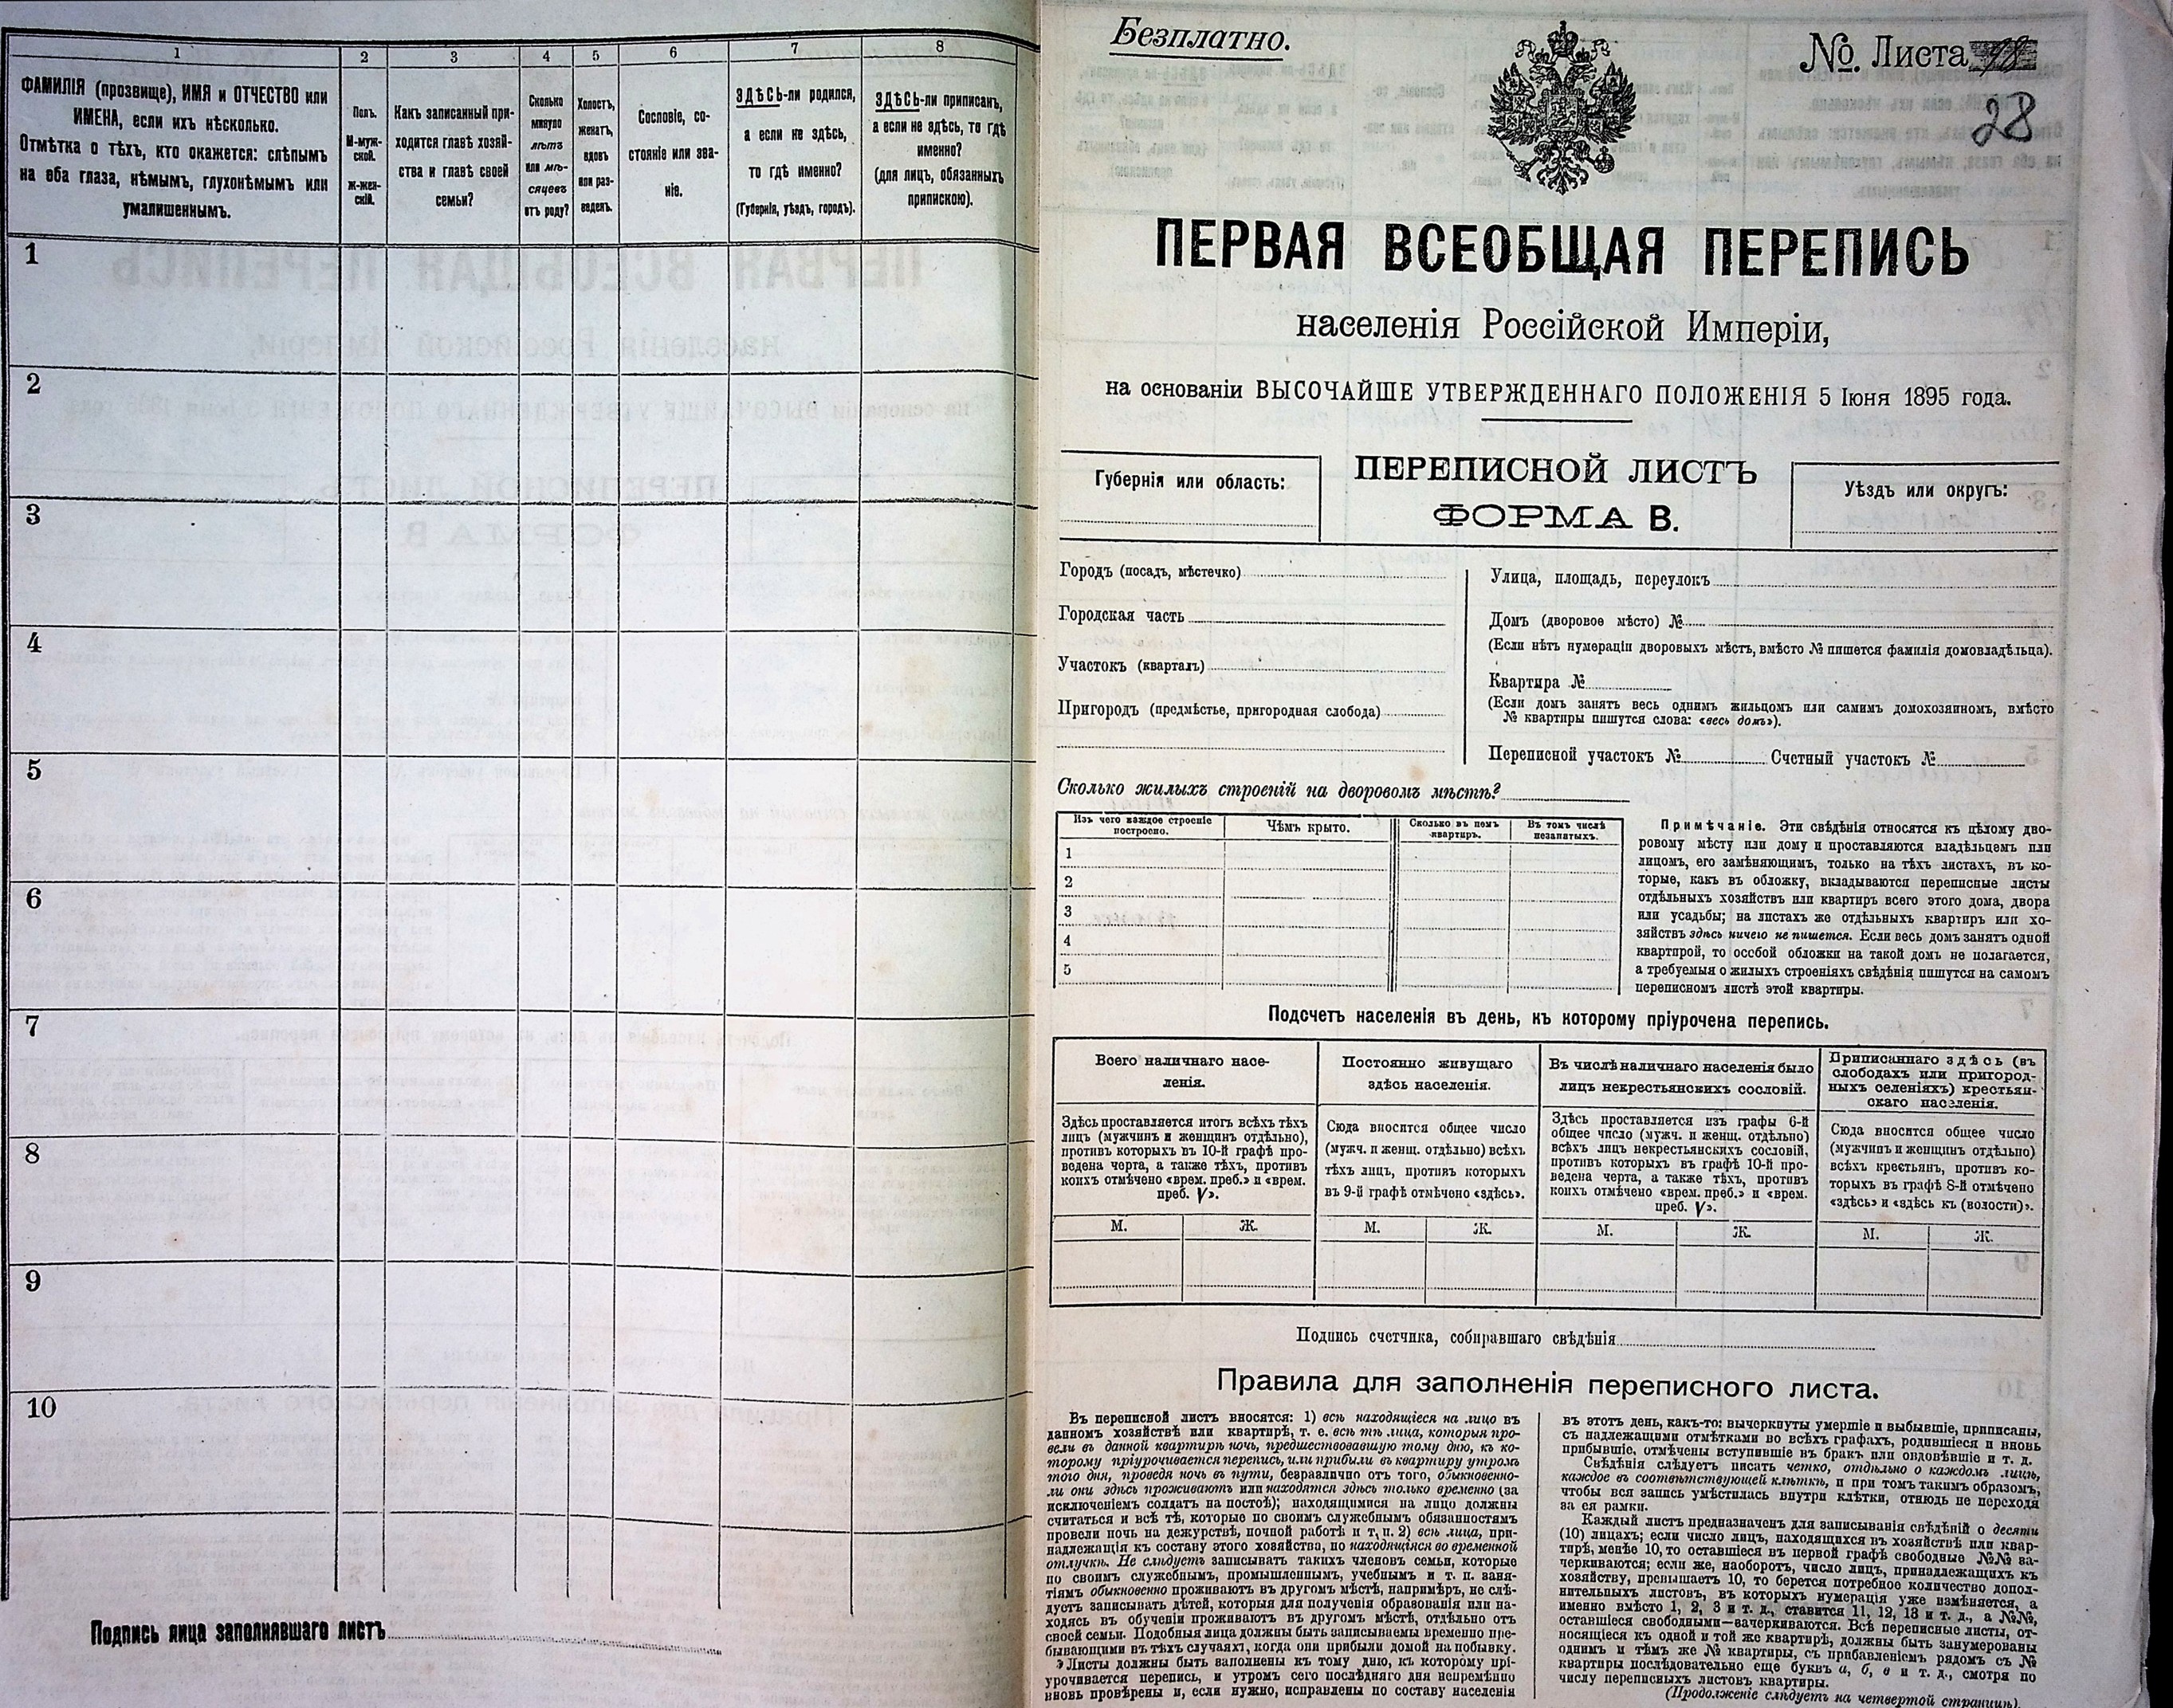 1 2 3 4 5 6 7 8
ФАМИЛІЯ (прозвище), ИМЯ и ОТЧЕСТВО или
ИМЕНА, если ихъ нѣсколько.
Отмѣтка о тѣхъ, кто окажется: слѣпымъ
на оба глаза, нѣмымъ, глухонѣмымъ или
умалишеннымъ.
Полъ.
М-муж-
ской.
ж-жен-
скій.
Какъ записанный при-
ходится главѣ хозяй-
ства и главѣ своей
семьи?
Сколько
минуло
лѣтъ
или мѣ-
сяцевъ
отъ роду?
Холостъ,
женатъ,
вдовъ
или раз-
веденъ.
Сословіе, со-
стояніе или зва-
ніе.
ЗДѢСЬ-ли родился,
а если не здѣсь,
то гдѣ именно?
(Губернія, уѣздъ, городъ).
ЗДѢСЬ-ли приписанъ,
а если не здѣсь, то гдѣ
именно?
(для лицъ, обязанныхъ
припискою).
1
2
3
4
5
6
7
8
9
10
Подпись лица заполнявшаго листъ
Безплатно.
№. Листа
28
ПЕРВАЯ ВСЕОБЩАЯ ПЕРЕПИСЬ
населенія Россійской Имперіи,
на основаніи ВЫСОЧАЙШЕ УТВЕРЖДЕННАГО ПОЛОЖЕНІЯ 5 Іюня 1895 года.
Губернія или область:
ПЕРЕПИСНОЙ ЛИСТЪ
ФОРМА В.
Уѣздъ или округъ:
Городъ (посадъ, мѣстечко)
Городская часть
Участокъ (кварталъ)
Пригородъ (предмѣстье, пригородная слобода)
Улица, площадь, переулокъ
Домъ (дворовое мѣсто) №
(Если нѣтъ нумераціи дворовыхъ мѣстъ, вмѣсто № пишется фамилія домовладѣльца).
Квартира №
(Если домъ занятъ весь однимъ жильцомъ или самимъ домохозяиномъ, вмѣсто
№ квартиры пишутся слова: «весь домъ»).
Переписной участокъ № Счетный участокъ №
Сколько жилыхъ строеній на дворовомъ мѣстѣ?
Изъ чего каждое строеніе
построено.
Чѣмъ крыто.
Сколько въ немъ
квартиръ.
Въ томъ числѣ
незанятыхъ.
1
2
3
4
5
Примѣчаніе. Эти свѣдѣнія относятся къ цѣлому дво-
ровому мѣсту или дому и проставляются владѣльцемъ или
лицомъ, его замѣняющимъ, только на тѣхъ листахъ, въ ко-
торые, какъ въ обложку, вкладываются переписные листы
отдѣльныхъ хозяйствъ или квартиръ всего этого дома, двора
или усадьбы; на листахъ же отдѣльныхъ квартиръ или хо-
зяйствъ здѣсь ничего не пишется. Если весь домъ занятъ одной
квартирой, то особой обложки на такой домъ не полагается,
а требуемыя о жилыхъ строеніяхъ свѣдѣнія пишутся на самомъ
переписномъ листѣ этой квартиры.
Подсчетъ населенія въ день, къ которому пріурочена перепись.
Всего наличнаго насе-
ленія.
Здѣсь проставляется итогъ всѣхъ тѣхъ
лицъ (мужчинъ и женщинъ отдѣльно),
противъ которыхъ въ 10-й графѣ про-
ведена черта, а также тѣхъ, противъ
коихъ отмѣчено «врем. преб.» и «врем.
преб. V».
М. Ж.
Постоянно живущаго
здѣсь населенія.
Сюда вносится общее число
(мужч. и женщ. отдѣльно) всѣхъ
тѣхъ лицъ, противъ которыхъ
въ 9-й графѣ отмѣчено «здѣсь».
М. Ж.
Въ числѣ наличнаго населенія было
лицъ некрестьянскихъ сословій.
Здѣсь проставляется изъ графы 6-й
общее число (мужч. и женщ. отдѣльно)
всѣхъ лицъ некрестьянскихъ сословій,
противъ которыхъ въ графѣ 10-й про-
ведена черта, а также тѣхъ, противъ
коихъ отмѣчено «врем. преб.» и «врем.
преб. V».
М. Ж.
Приписаннаго здѣсь (въ
слободахъ или пригород-
ныхъ селеніяхъ) крестьян-
скаго населенія.
Сюда вносится общее число
(мужчинъ и женщинъ отдѣльно)
всѣхъ крестьянъ, противъ ко-
торыхъ въ графѣ 8-й отмѣчено
«здѣсь» и «здѣсь къ (волости)».
М. Ж.
Подпись счетчика, собиравшаго свѣдѣнія
Правила для заполненія переписного листа.
Въ переписной листъ вносятся: 1) всѣ находящіеся на лицо въ
данномъ хозяйствѣ или квартирѣ, т. е. всѣ тѣ лица, которыя про-
вели въ данной квартирѣ ночь, предшествовавшую тому дню, къ ко-
торому пріурочивается перепись, или прибыли въ квартиру утромъ
того дня, проведя ночь въ пути, безразлично отъ того, обыкновенно-
ли они здѣсь проживаютъ или находятся здѣсь только временно (за
исключеніемъ солдатъ на постоѣ); находящимися на лицо должны
считаться и всѣ тѣ, которые по своимъ служебнымъ обязанностямъ
провели ночь на дежурствѣ, ночной работѣ и т. п. 2) всѣ лица, при-
надлежащія къ составу этого хозяйства, но находящіяся во временной
отлучкѣ. Не слѣдуетъ записывать такихъ членовъ семьи, которые
по своимъ служебнымъ, промышленнымъ, учебнымъ и т. п. заня-
тіямъ обыкновенно проживаютъ въ другомъ мѣстѣ, напримѣръ, не слѣ-
дуетъ записывать дѣтей, которыя для полученія образованія или на-
ходясь въ обученіи проживаютъ въ другомъ мѣстѣ, отдѣльно отъ
своей семьи. Подобныя лица должны быть записываемы временно пре-
бывающими въ тѣхъ случаяхъ, когда они прибыли домой на побывку.
Листы должны быть заполнены къ тому дню, къ которому прі-
урочивается перепись, и утромъ сего послѣдняго дня непремѣнно
вновь провѣрены и, если нужно, исправлены по составу населенія
въ этотъ день, какъ-то: вычеркнуты умершіе и выбывшіе, приписаны,
съ надлежащими отмѣтками во всѣхъ графахъ, родившіеся и вновь
прибывшіе, отмѣчены вступившіе въ бракъ или овдовѣвшіе и т. д.
Свѣдѣнія слѣдуетъ писать четко, отдѣльно о каждомъ лицѣ,
каждое въ соотвѣтствующей клѣткѣ, и при томъ такимъ образомъ,
чтобы вся запись умѣстилась внутри клѣтки, отнюдь не переходя
за ея рамки.
Каждый листъ предназначенъ для записыванія свѣдѣній о десяти
(10) лицахъ; если число лицъ, находящихся въ хозяйствѣ или квар-
тирѣ, менѣе 10, то оставшіеся въ первой графѣ свободные №№ за-
черкиваются; если же, наоборотъ, число лицъ, принадлежащихъ къ
хозяйству, превышаетъ 10, то берется потребное количество допол-
нительныхъ листовъ, въ которыхъ нумерація уже измѣняется, а
именно вмѣсто 1, 2, 3 и т. д., ставится 11, 12, 13 и т. д., а №№,
оставшіеся свободными—вачеркиваются. Всѣ переписные листы, от-
носящіеся къ одной и той же квартирѣ, должны быть занумерованы
однимъ и тѣмъ же № квартиры, съ прибавленіемъ рядомъ съ №
квартиры послѣдовательно еще буквъ а, б, в и т. д., смотря по
числу переписныхъ листовъ квартиры.
(Продолженіе слѣдуетъ на четвертой страницѣ).